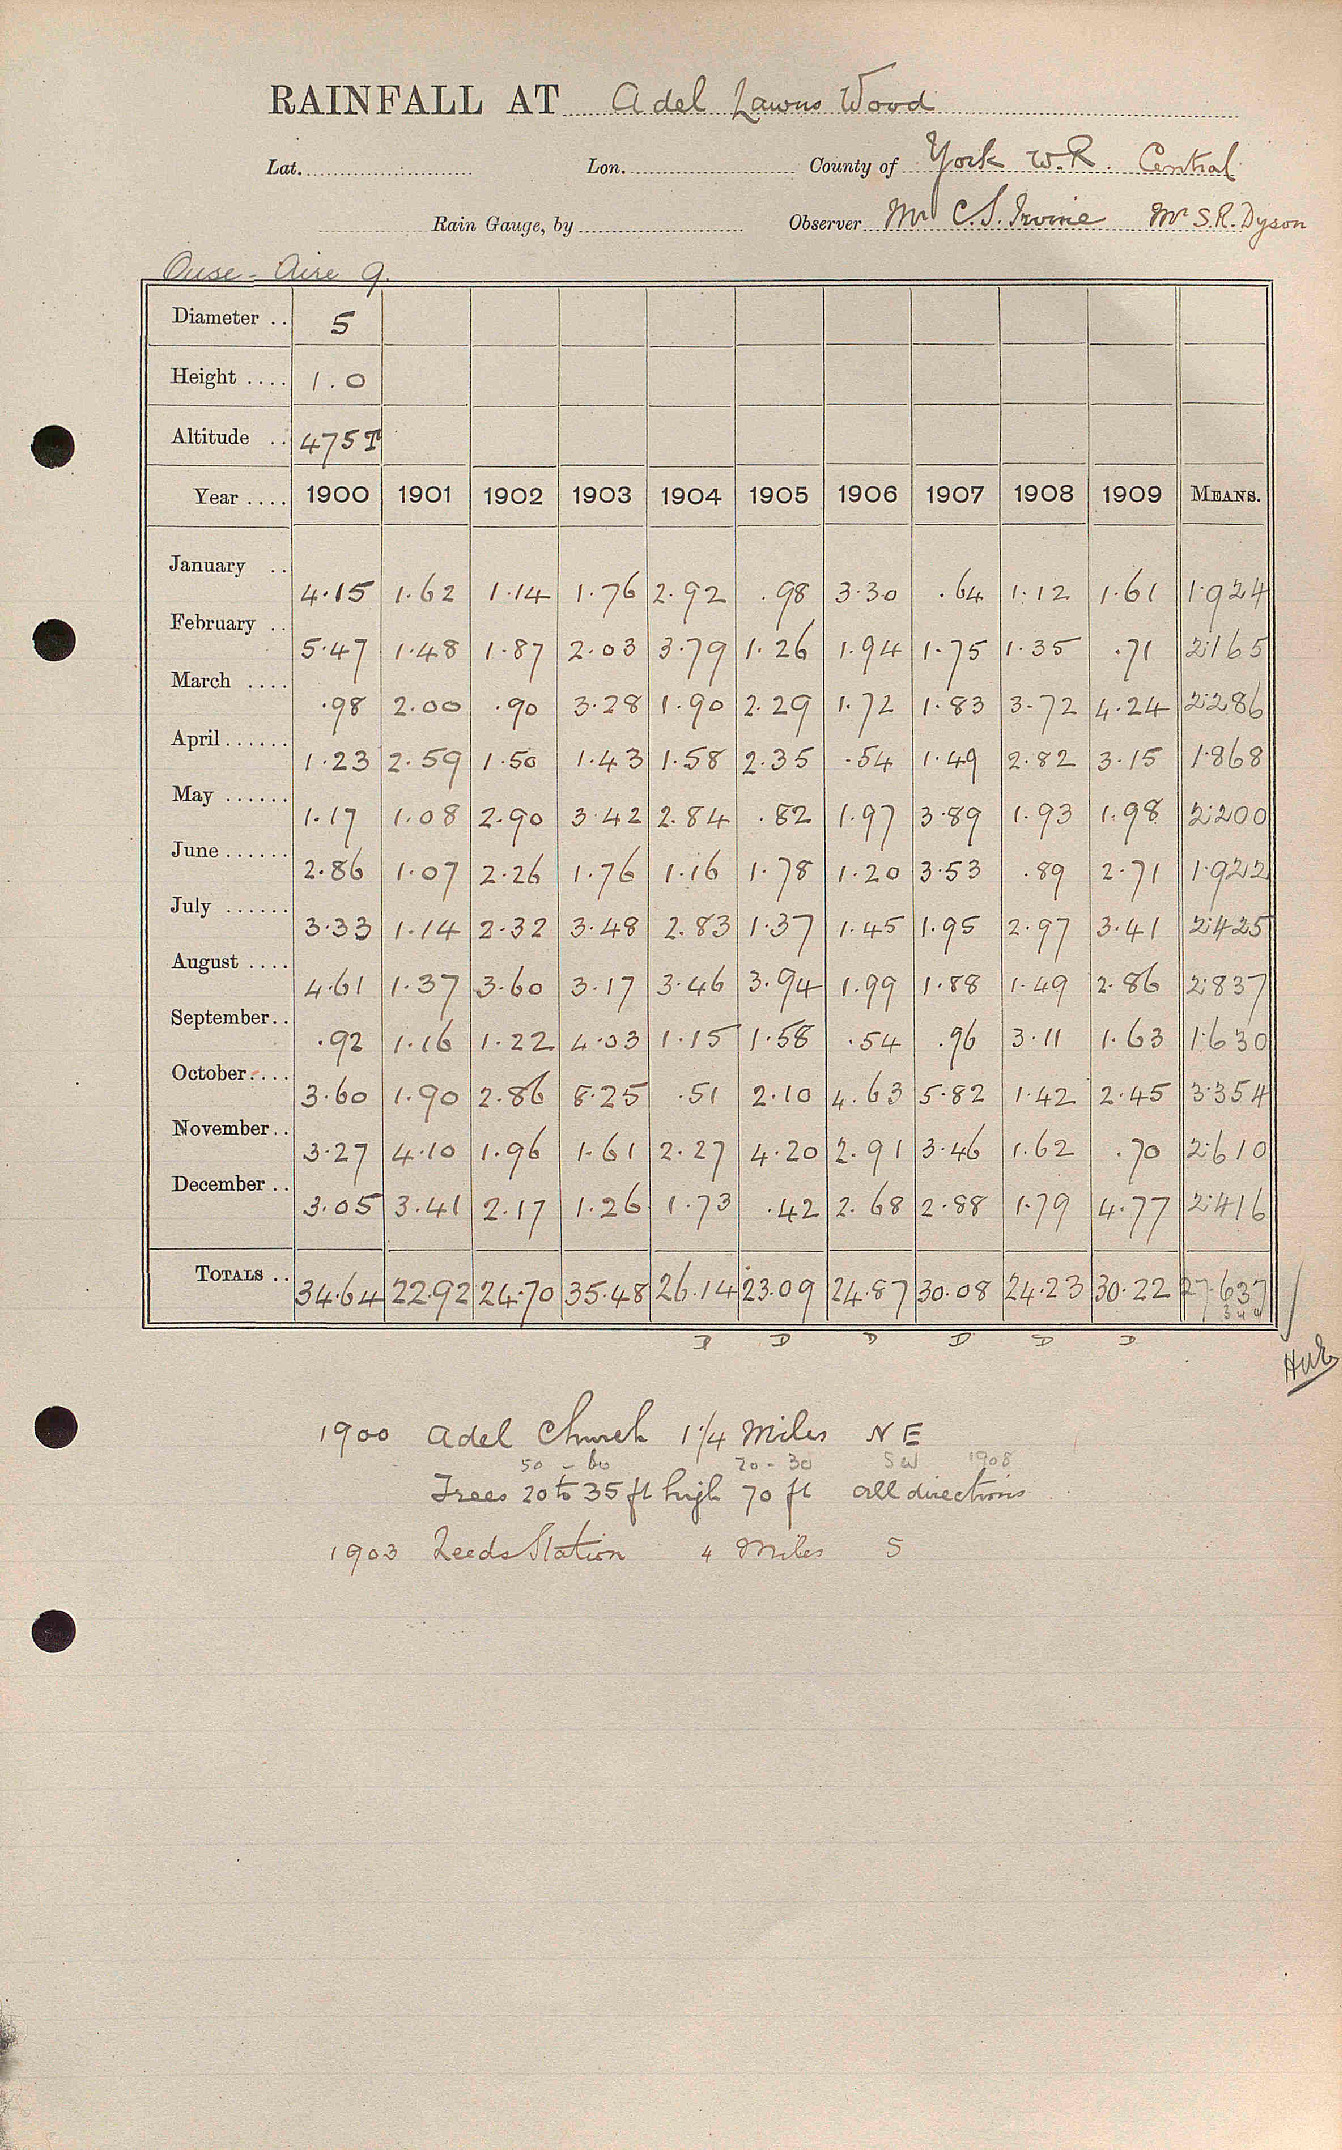 RAINFALL AT Adel Lawns Wood
Lat. Lon. County of York W.R. Central
Rain Gauge, by Observer Mr C.S. Irvine Mr S.R. Dyson
Ouse - Aire 9.
Diameter .. 5
Height .... 1.0
Altitude .. 475T
Year .... 1900 1901 1902 1903 1904 1905 1906 1907 1908 1909 MEANS.
January .. 4.15 1.62 1.14 1.76 2.92 .98 3.30 .64 1.12 1.61 1.924
February .. 5.47 1.48 1.87 2.03 3.79 1.26 1.94 1.75 1.35 .71 2.165
March .... .98 2.00 .90 3.28 1.90 2.29 1.72 1.83 3.72 4.24 2.286
April...... 1.23 2.59 1.50 1.43 1.58 2.35 .54 1.49 2.82 3.15 1.868
May ...... 1.17 1.08 2.90 3.42 2.84 .82 1.97 3.89 1.93 1.98 2.200
June ...... 2.86 1.07 2.26 1.76 1.16 1.78 1.20 3.53 .89 2.71 1.922
July ...... 3.33 1.14 2.32 3.48 2.83 1.37 1.45 1.95 2.97 3.41 2.425
August .... 4.61 1.37 3.60 3.17 3.46 3.94 1.99 1.88 1.49 2.86 2.837
September.. .92 1.16 1.22 4.03 1.15 1.58 .54 .96 3.11 1.63 1.630
October.... 3.60 1.90 2.86 8.25 .51 2.10 4.63 5.82 1.42 2.45 3.354
November.. 3.27 4.10 1.96 1.61 2.27 4.20 2.91 3.46 1.62 .70 2.610
December .. 3.05 3.41 2.17 1.26 1.73 .42 2.68 2.88 1.79 4.77 2.416
TOTALS .. 34.64 22.92 24.70 35.48 26.14 23.09 24.87 30.08 24.23 30.22 27.637
D D D D D D
1900 Adel Church 1 1/4 Miles NE
50 - 60 20 - 30 SW 1908
Trees 20 to 35 ft high 70 ft all directions
1903 Leeds Station 4 Miles S